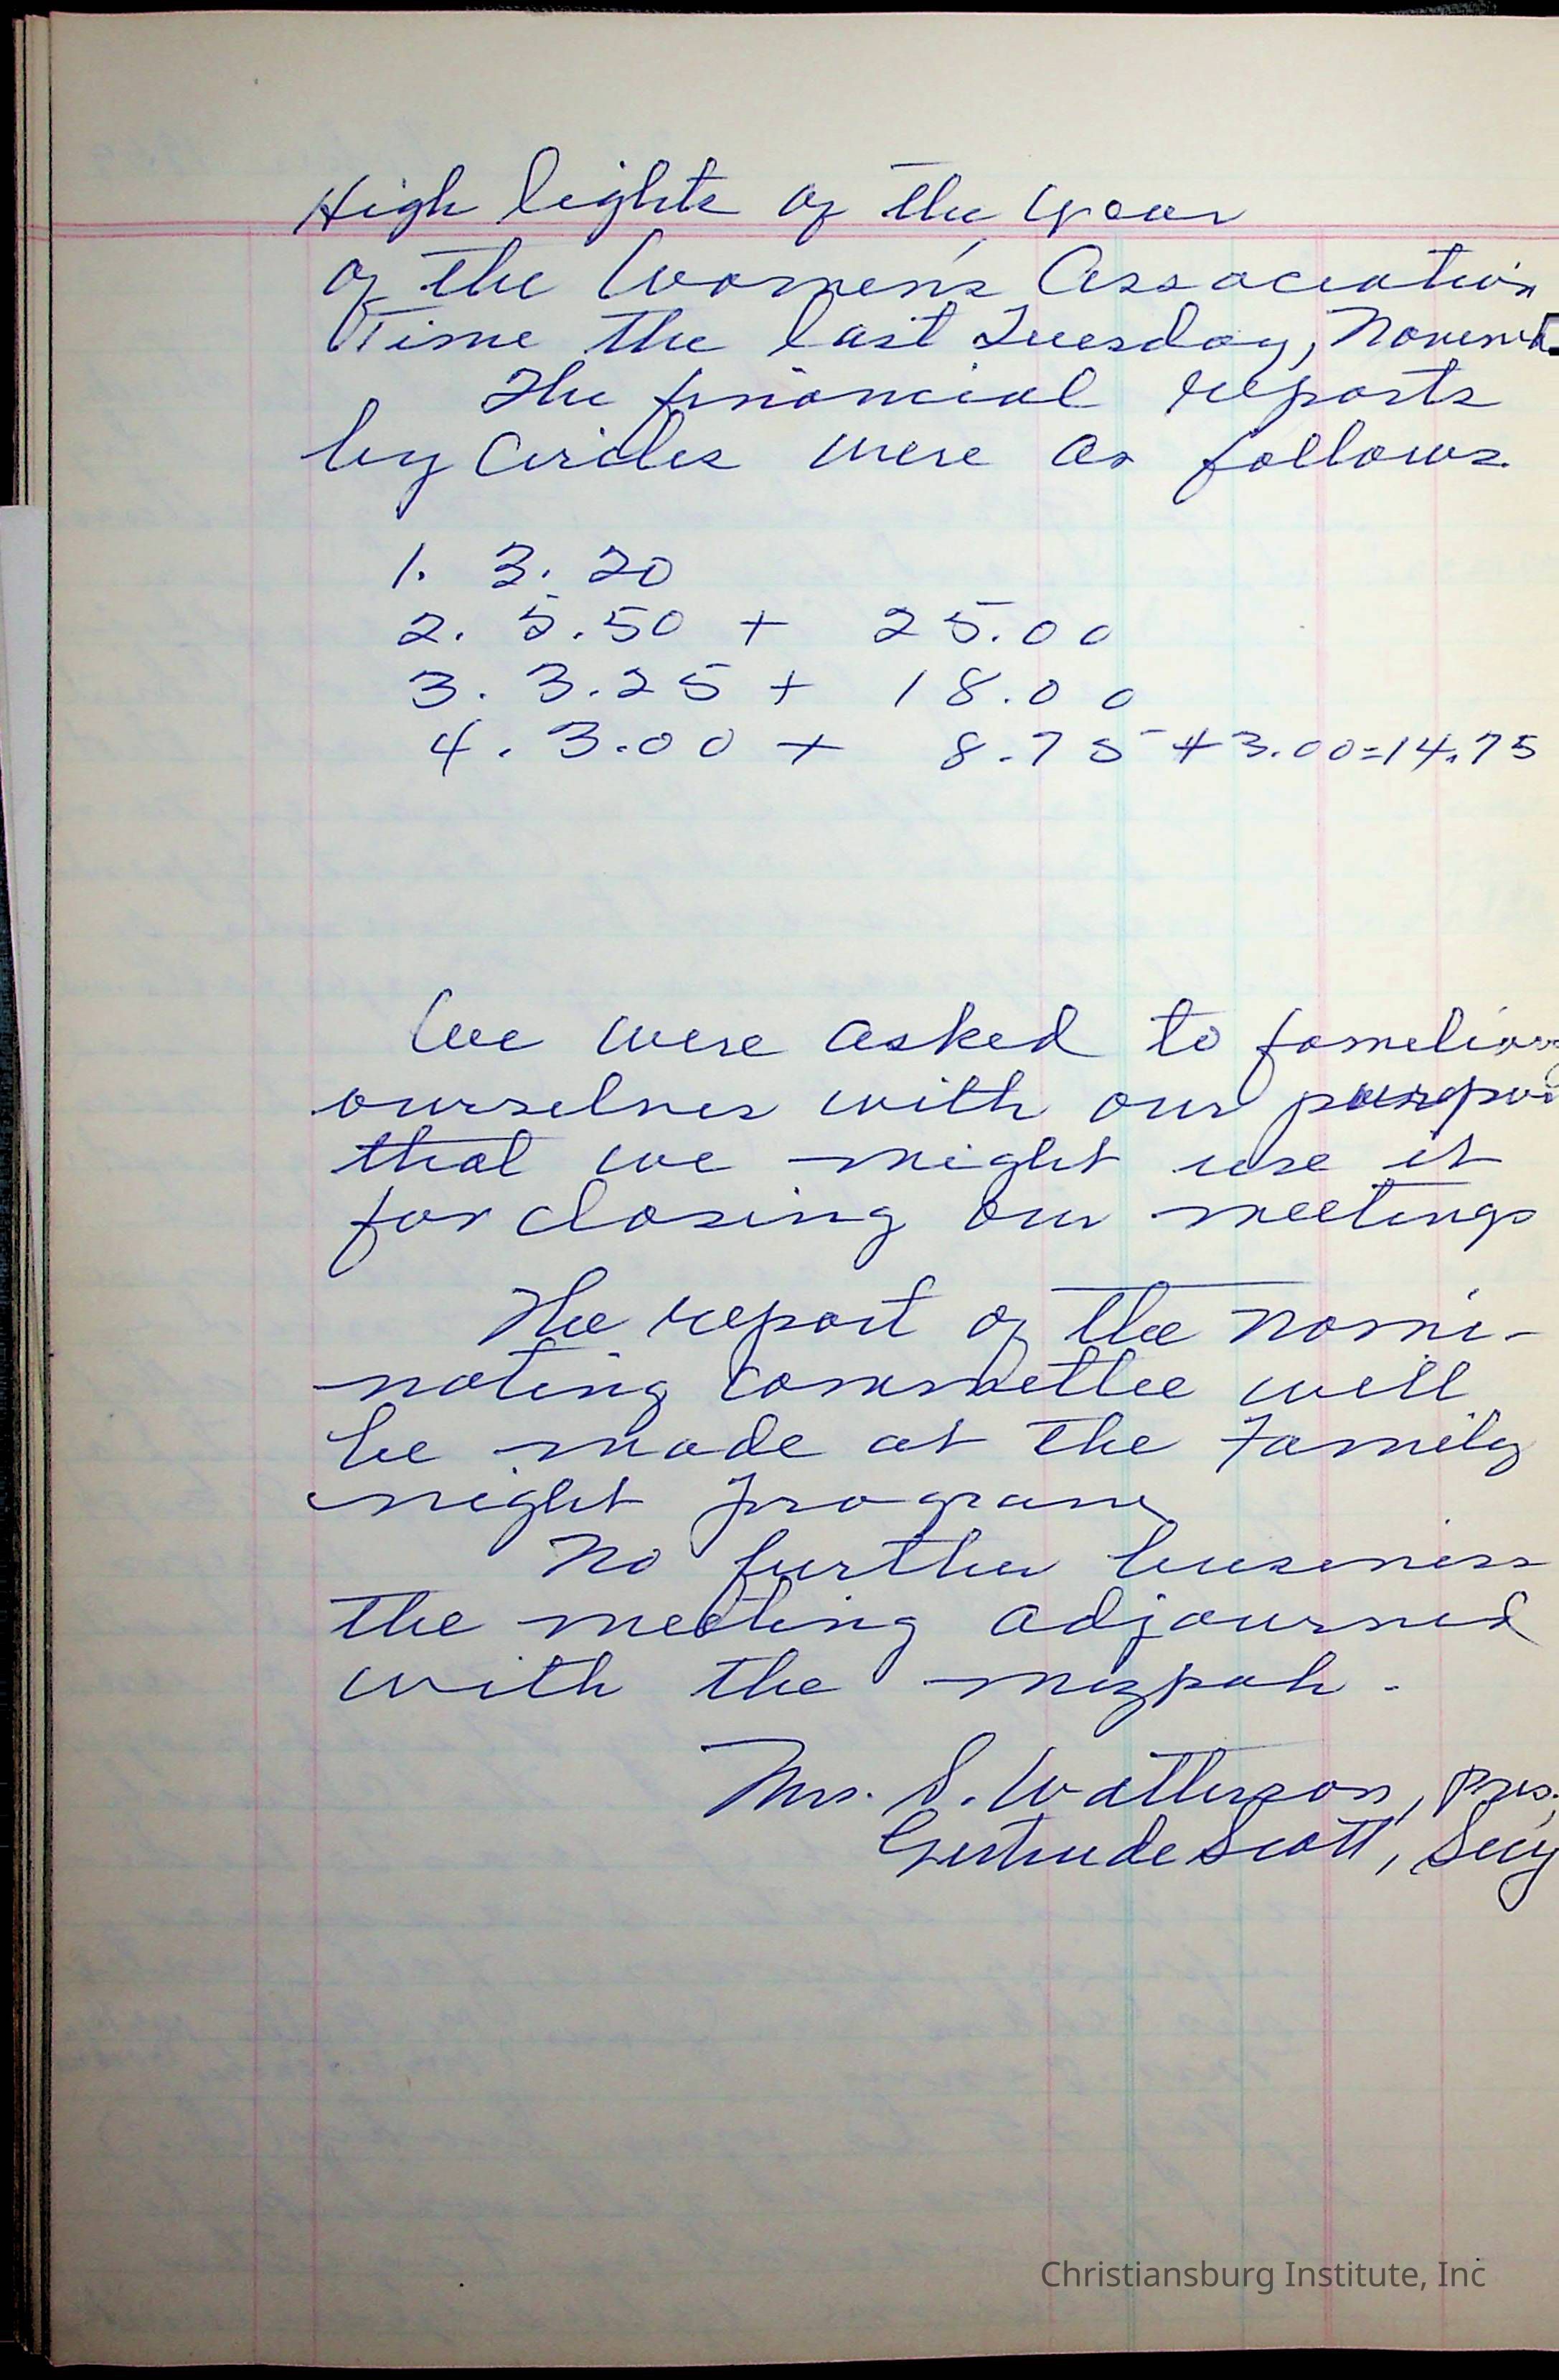 High lights of the year
of the Women's Association
Time the last Tuesday, Novemb
The financial reports
by Circles were as follows.
1. 3.20
2. 5.50 + 25.00
3. 3.25 + 18.00
4. 3.00 + 8.75 + 3.00=14.75
We were asked to familiar
ourselves with our purpo
that we might use it
for closing our meetings
The report of the Nomi-
nating committee will
be made at the Family
night program
No further business
the meeting adjourned
with the mizpah.
Mrs. S. Watterson, Pres.
Gertrude Scott, Sec'y
Christiansburg Institute, Inc